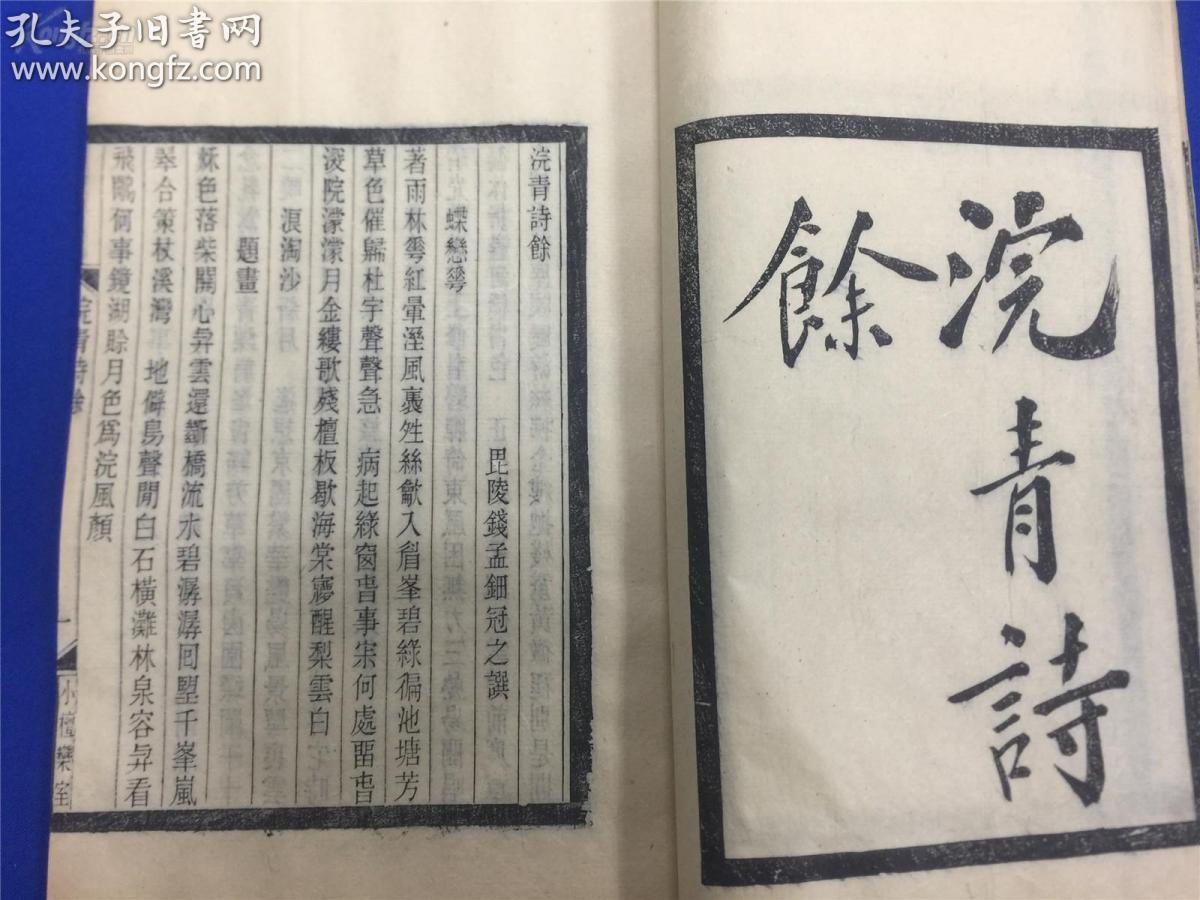 孔夫子旧书网
www.kongfz.com
浣青詩
餘
浣青詩餘
毘陵錢孟鈿冠之譔
蝶戀蕐
著雨林蕐紅暈溼風裹
絲歙入睂峯碧綠徧池塘芳
草色催歸杜字聲聲急 病起綠窗旾事宋何處畱旾
深院濛濛月金縷歌殘檀板歇海棠㝱醒梨雲白
浪淘沙
題畫
秌色落柴關心昇雲還斷橋流水碧潺潺回朢千峯嵐
翠合策杖溪灣 地僻鳥聲閒白石橫灘林泉容昇看
飛鷴何事鏡湖賒月色爲浣風顏
浣青詩餘
一
小檀欒室